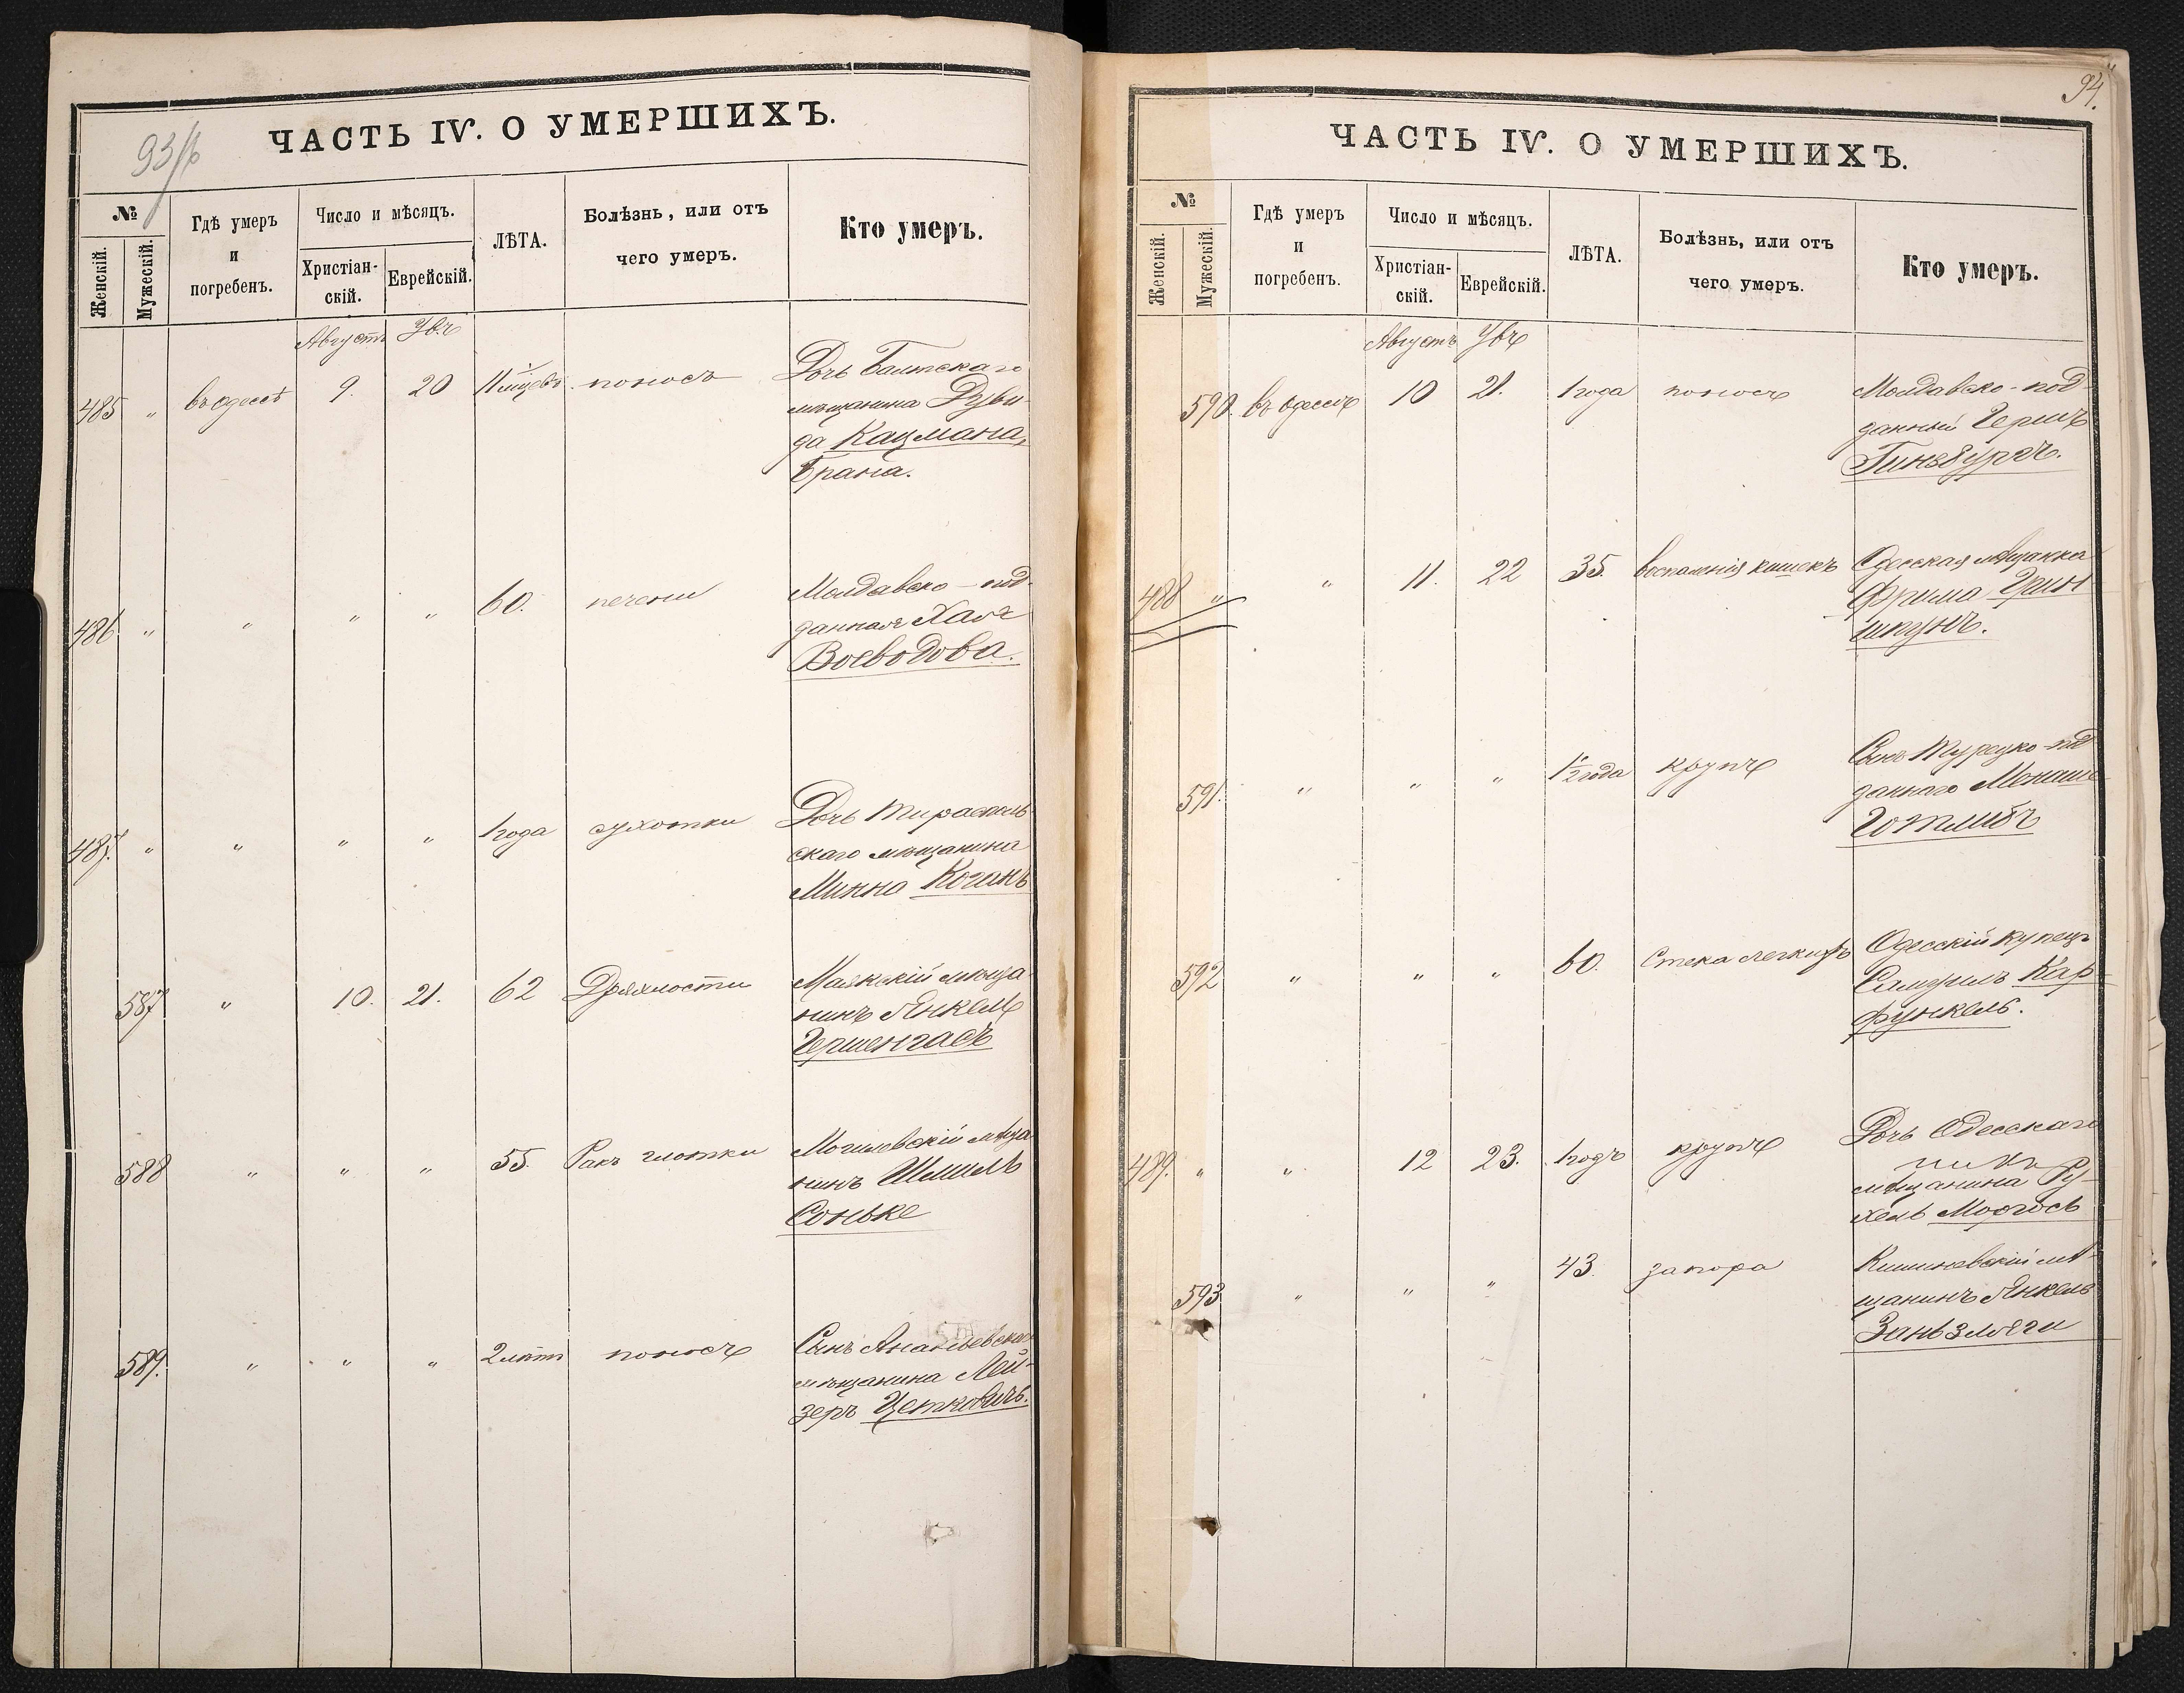 93/б
ЧАСТЬ IV. О УМЕРШИХЪ.
№
Женскій.
Мужескій.
Гдѣ умеръ
и
погребенъ.
Число и мѣсяцъ.
Христіан-
скій.
Еврейскій.
ЛѢТА.
Болѣзнь, или отъ
чего умеръ.
Кто умеръ.
Августъ
485 " въ Одессѣ 9. 20 11 мцевъ поносъ Дочь Балтскаго
мѣщанина Дуви-
да Кацмана,
Брана.
486 " " " " 60. печени Молдавско-под-
данная Хая
Воеводова.
487. " " " " 1 года сухотки Дочь Тирасполь-
скаго мѣщанина
Минна Коганъ
587 " 10. 21. 62 Дряхлости Маякскій мѣща-
нинъ Янкель
Гершенгасъ
588 " " " 55. Ракъ глотки Могилевскій мѣща-
нинъ Шмиль
Соньке
589. " " " 2 лѣтъ поносъ Сынъ Ананьевскаго
мѣщанина Лей-
зеръ Цетковичъ.
94.
ЧАСТЬ IV. О УМЕРШИХЪ.
№
Женскій.
Мужескій.
Гдѣ умеръ
и
погребенъ.
Число и мѣсяцъ.
Христіан-
скій.
Еврейскій.
ЛѢТА.
Болѣзнь, или отъ
чего умеръ.
Кто умеръ.
Августъ
590. въ Одессѣ 10 21. 1 года поносъ Молдавско-под-
данный Гершъ
Гинзбургъ.
488 " " 11. 22 35. воспаленія кишекъ Одесская мѣщанка
Фрима Грин
шпунъ.
591. " " " 1½ года крупъ Сынъ Турецко-под
даннаго Менаше
Готлибъ
592 " " " 60. Отека легкихъ Одесскій купецъ
Самуилъ Кар-
функель.
489. " " 12 23. 1 годъ крупъ Дочь Одесскаго
мѣщанина Ру-
хель Моргосъ
593 " " " 43. запора Кишиневскій мѣ-
щанинъ Янкель